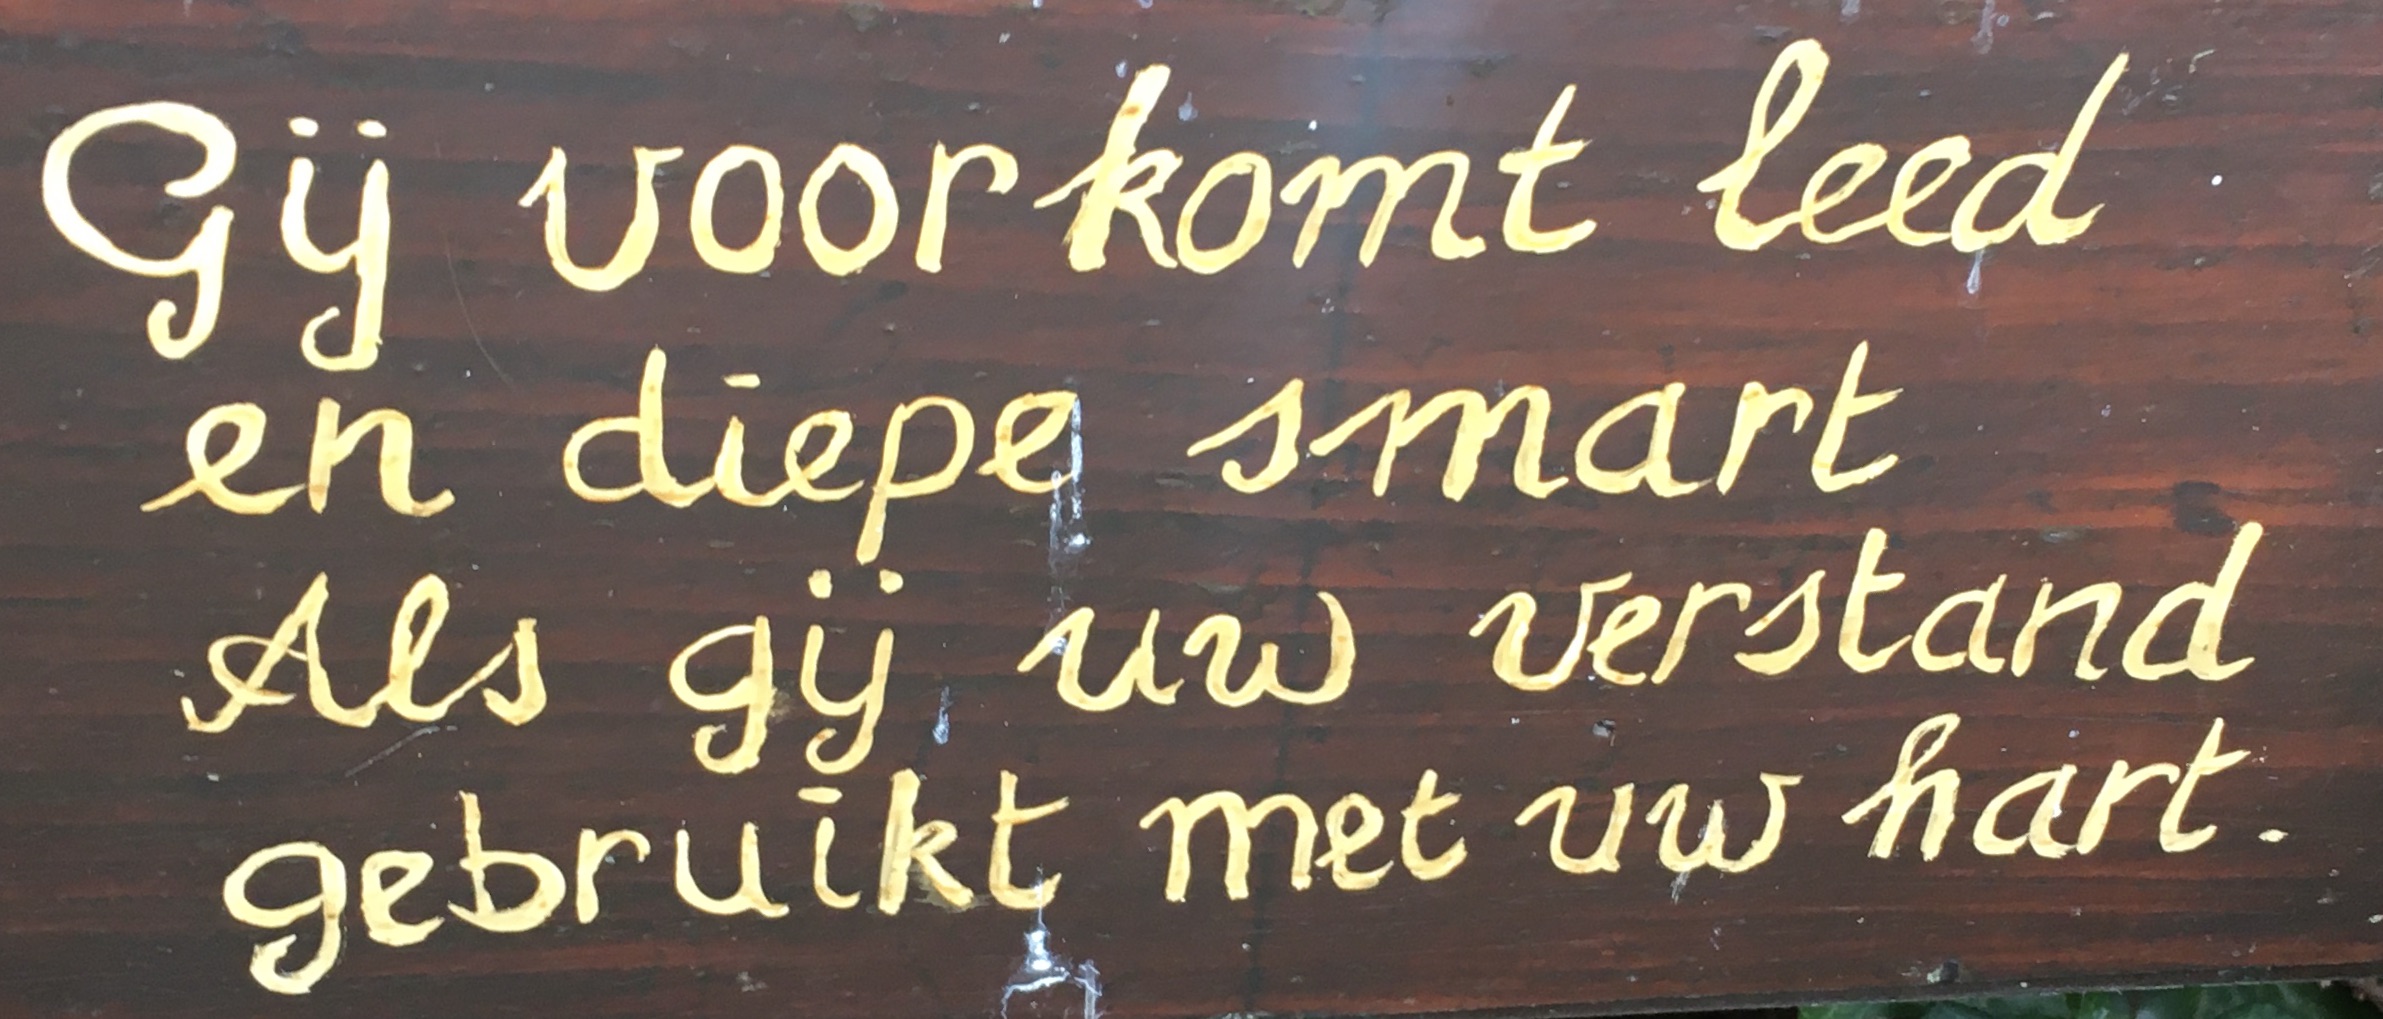 Gij voorkomt leed
en diepe smart
Als gij uw verstand
gebruikt met uw hart.